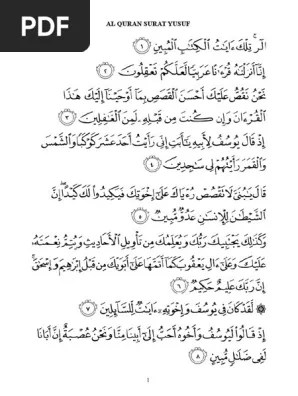 PDF
AL QURAN SURAT YUSUF
الٓر ۚ تِلْكَ ءَايَٰتُ ٱلْكِتَٰبِ ٱلْمُبِينِ ١
إِنَّآ أَنزَلْنَٰهُ قُرْءَٰنًا عَرَبِيًّا لَّعَلَّكُمْ تَعْقِلُونَ ٢
نَحْنُ نَقُصُّ عَلَيْكَ أَحْسَنَ ٱلْقَصَصِ بِمَآ أَوْحَيْنَآ إِلَيْكَ هَٰذَا
ٱلْقُرْءَانَ وَإِن كُنتَ مِن قَبْلِهِۦ لَمِنَ ٱلْغَٰفِلِينَ ٣
إِذْ قَالَ يُوسُفُ لِأَبِيهِ يَٰٓأَبَتِ إِنِّى رَأَيْتُ أَحَدَ عَشَرَ كَوْكَبًا وَٱلشَّمْسَ
وَٱلْقَمَرَ رَأَيْتُهُمْ لِى سَٰجِدِينَ ٤
قَالَ يَٰبُنَىَّ لَا تَقْصُصْ رُءْيَاكَ عَلَىٰٓ إِخْوَتِكَ فَيَكِيدُوا۟ لَكَ كَيْدًا ۖ إِنَّ
ٱلشَّيْطَٰنَ لِلْإِنسَٰنِ عَدُوٌّ مُّبِينٌ ٥
وَكَذَٰلِكَ يَجْتَبِيكَ رَبُّكَ وَيُعَلِّمُكَ مِن تَأْوِيلِ ٱلْأَحَادِيثِ وَيُتِمُّ نِعْمَتَهُۥ
عَلَيْكَ وَعَلَىٰٓ ءَالِ يَعْقُوبَ كَمَآ أَتَمَّهَا عَلَىٰٓ أَبَوَيْكَ مِن قَبْلُ إِبْرَٰهِيمَ وَإِسْحَٰقَ ۚ
إِنَّ رَبَّكَ عَلِيمٌ حَكِيمٌ ٦
۞ لَّقَدْ كَانَ فِى يُوسُفَ وَإِخْوَتِهِۦٓ ءَايَٰتٌ لِّلسَّآئِلِينَ ٧
إِذْ قَالُوا۟ لَيُوسُفُ وَأَخُوهُ أَحَبُّ إِلَىٰٓ أَبِينَا مِنَّا وَنَحْنُ عُصْبَةٌ إِنَّ أَبَانَا
لَفِى ضَلَٰلٍ مُّبِينٍ ٨
1